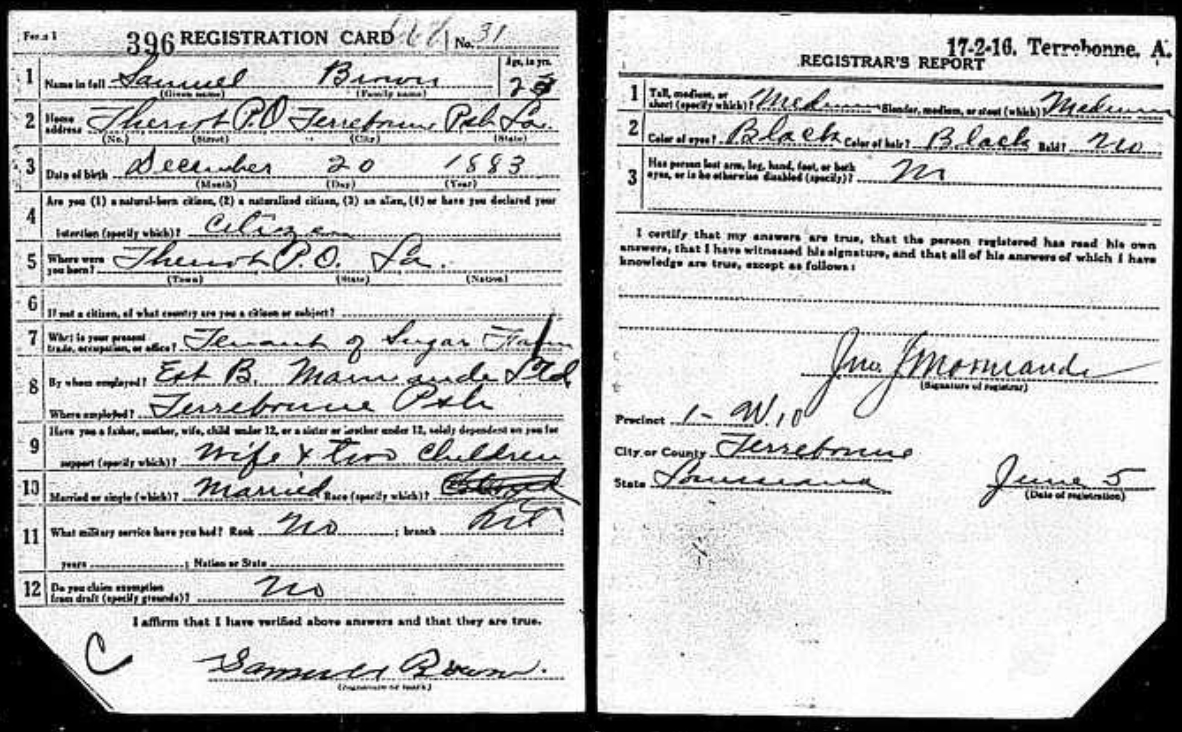 Form 1 396 REGISTRATION CARD No. 31
1 Name in full Samuel Brown Age, in yrs. 23
(Given name) (Family name)
2 Home address Theriot P.O Terrebonne Psh La.
(No.) (Street) (City) (State)
3 Date of birth December 20 1883
(Month) (Day) (Year)
4 Are you (1) a natural-born citizen, (2) a naturalized citizen, (3) an alien, (4) or have you declared your
intention (specify which)? Citizen
5 Where were you born? Theriot P.O. La.
(Town) (State) (Nation)
6 If not a citizen, of what country are you a citizen or subject?
7 What is your present trade, occupation, or office? Tenant of Sugar Farm
8 By whom employed? Est B. Ltd
Where employed? Terrebonne Psh
9 Have you a father, mother, wife, child under 12, or a sister or brother under 12, solely dependent on you for
support (specify which)? Wife & two Children
10 Married or single (which)? Married Race (specify which)?
11 What military service have you had? Rank No ; branch
years ; Nation or State
12 Do you claim exemption from draft (specify grounds)? No
I affirm that I have verified above answers and that they are true.
C
Samuel Brown.
(Signature or mark)
17-2-16. Terrebonne, A.
REGISTRAR'S REPORT
1 Tall, medium, or short (specify which)? Medium Slender, medium, or stout (which)? Medium
2 Color of eyes? Black Color of hair? Black Bald? No
3 Has person lost arm, leg, hand, foot, or both eyes, or is he otherwise disabled (specify)? No
I certify that my answers are true, that the person registered has read his own
answers, that I have witnessed his signature, and that all of his answers of which I have
knowledge are true, except as follows:
Jno. J
(Signature of registrar)
Precinct 1 - W. 10
City or County Terrebonne
State Louisiana June 5
(Date of registration)